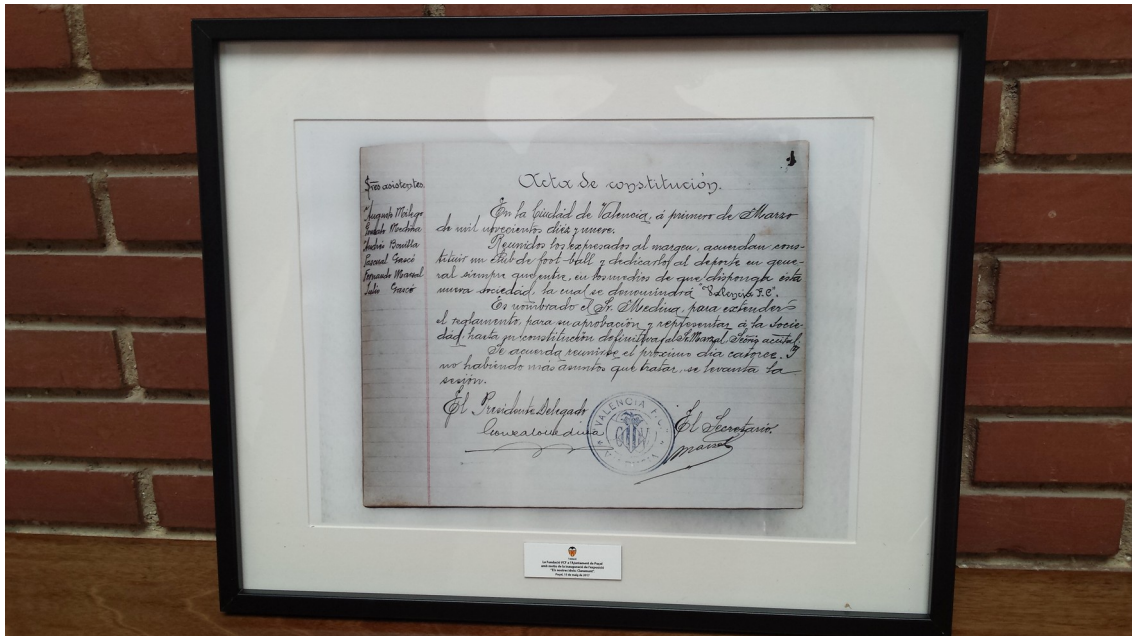 1
Sres asistentes.
Augusto Milego
Gonzalo Medina
Andrés Bonilla
Pascual Gascó
Fernando Marzal
Julio Gascó
Acta de constitución.
En la Ciudad de Valencia, á primero de Marzo
de mil novecientos diez y nueve.
Reunidos los expresados al margen, acuerdan cons-
tituir un Club de foot-ball y dedicarlo al deporte en gene-
ral siempre que entre en los medios de que disponga esta
nueva sociedad, la cual se denominará "Valencia F.C".
Es nombrado el Sr. Medina, para extender
el reglamento, para su aprobación y representar á la Socie-
dad, hasta su constitución definitiva, y al Sr. Marzal, Srio actual.
Se acuerda reunirse el próximo dia catorce. Y
no habiendo más asuntos que tratar, se levanta la
sesión.
El Presidente Delegado
El Secretario.
Gonzalo Medina
Marzal
VALENCIA F.C.
VALENCIA
La Fundació VCF a l'Ajuntament de Puçol
amb motiu de la inauguració de l'exposició
Puçol, de maig de 2017